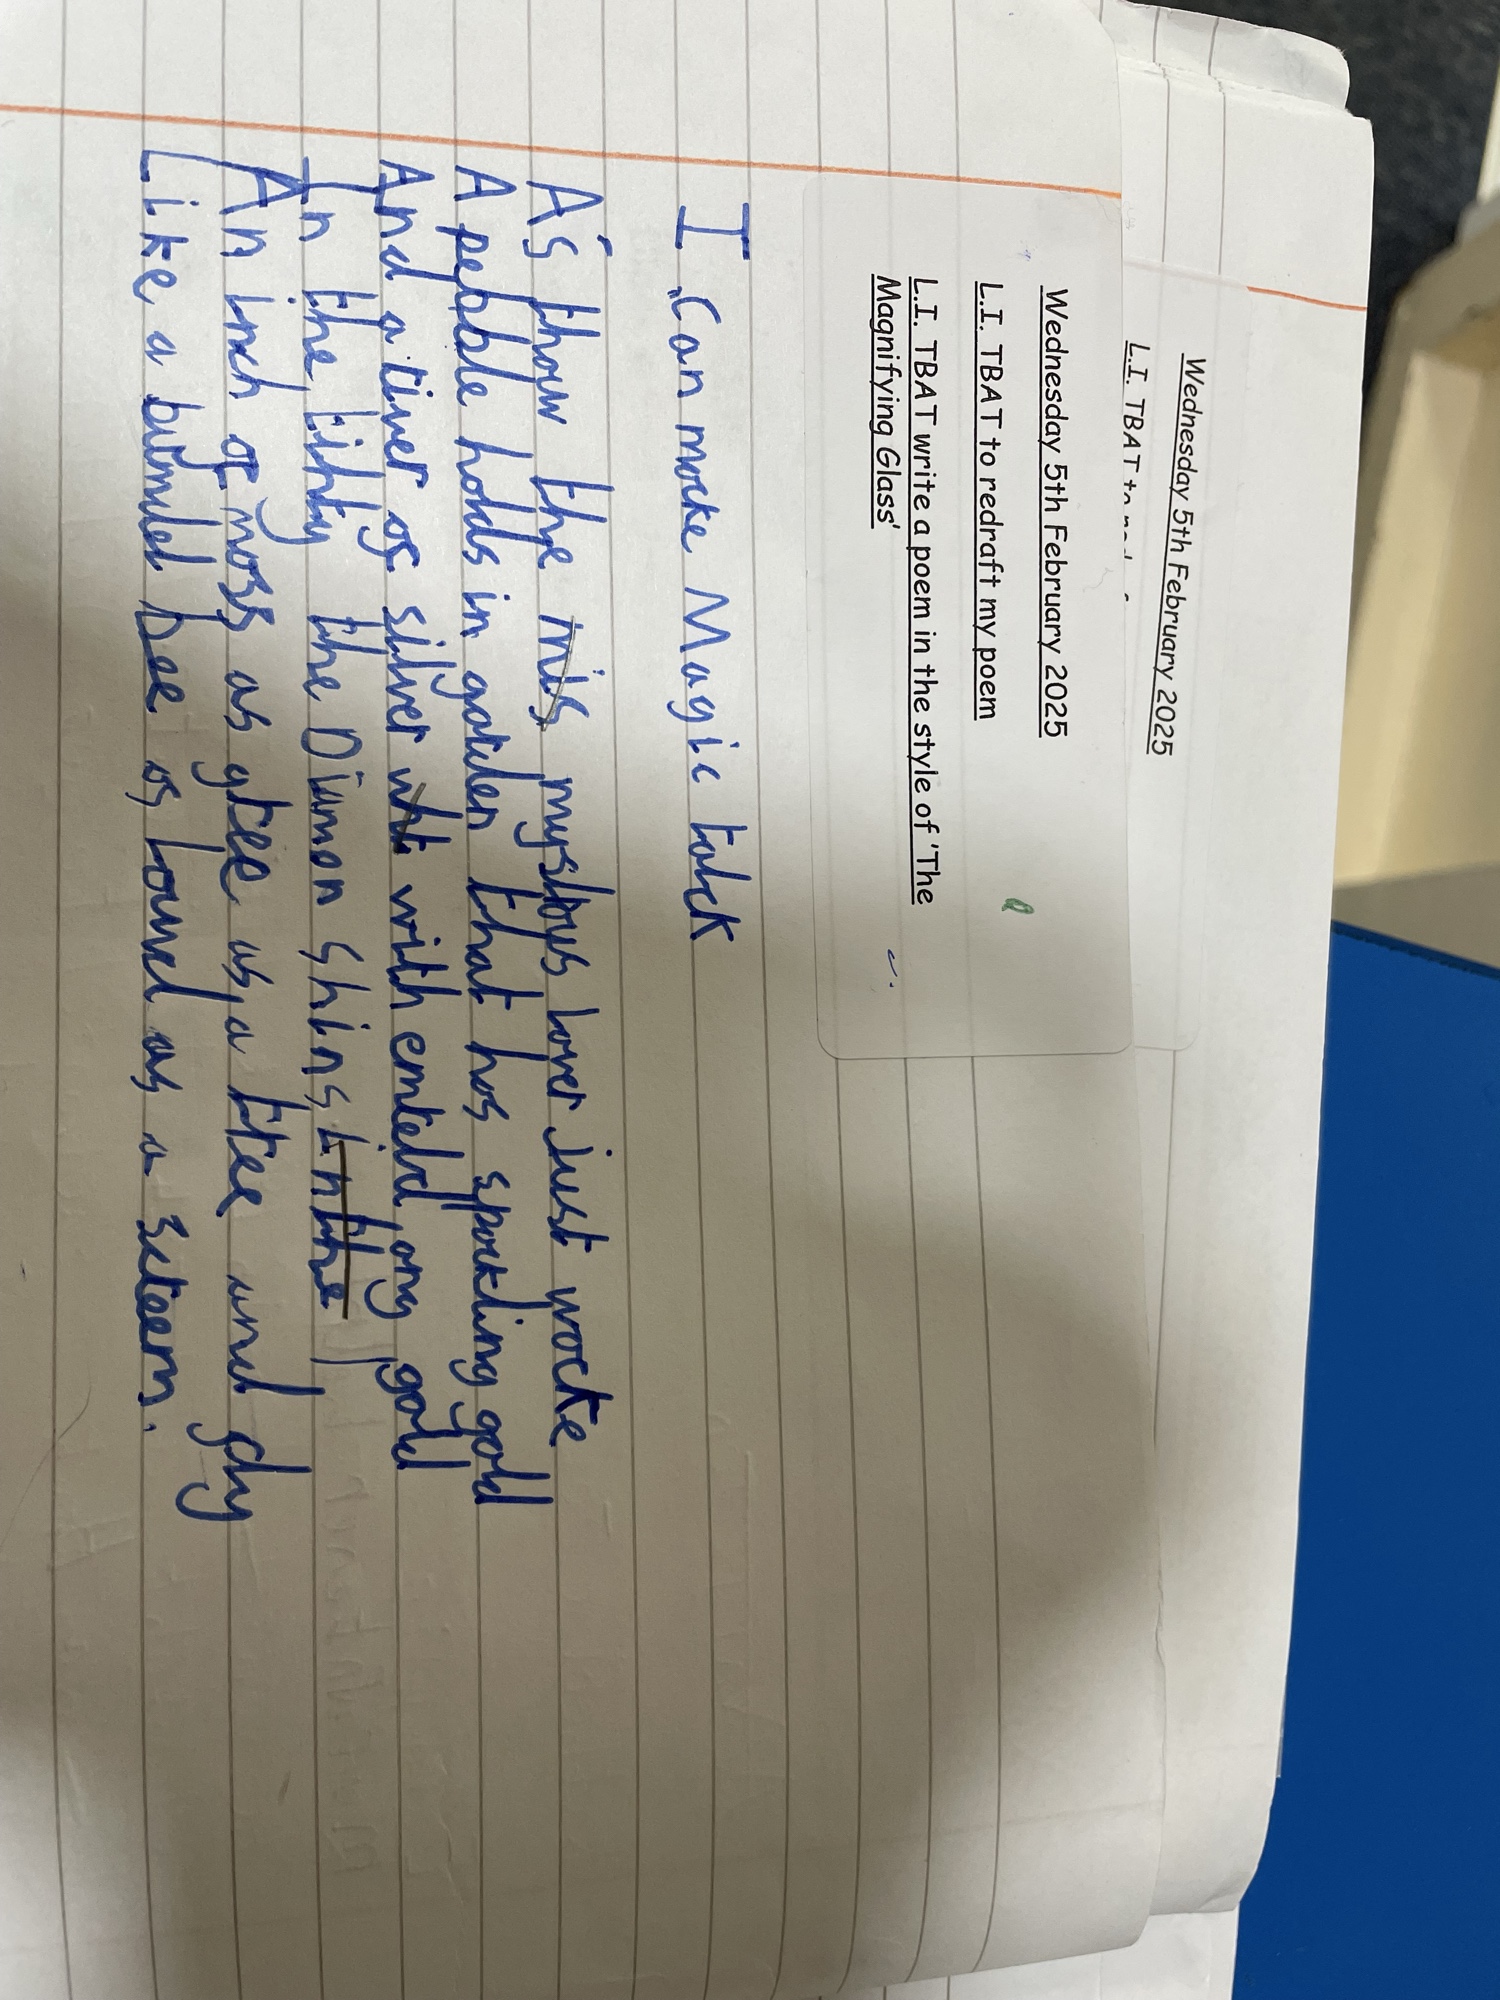 Wednesday 5th February 2025
L.I. TBAT to
Wednesday 5th February 2025
L.I. TBAT to redraft my poem
L.I. TBAT write a poem in the style of 'The
Magnifying Glass'
I can mocke Magic talck
As thow the mis myslous lover just wocke
A pebble holds in garden that has sparkling gold
And a river of silver wht with emteld ong gold
In the lihty the Dimon shins in the
An inch of moss as gree as a tree and
Like a bumdel bee os lowd as a screem.